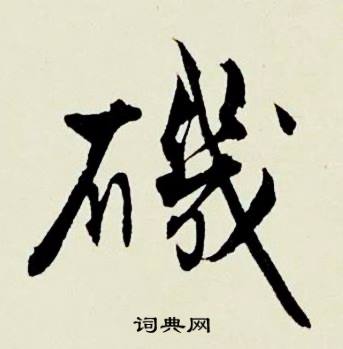 磯
词典网